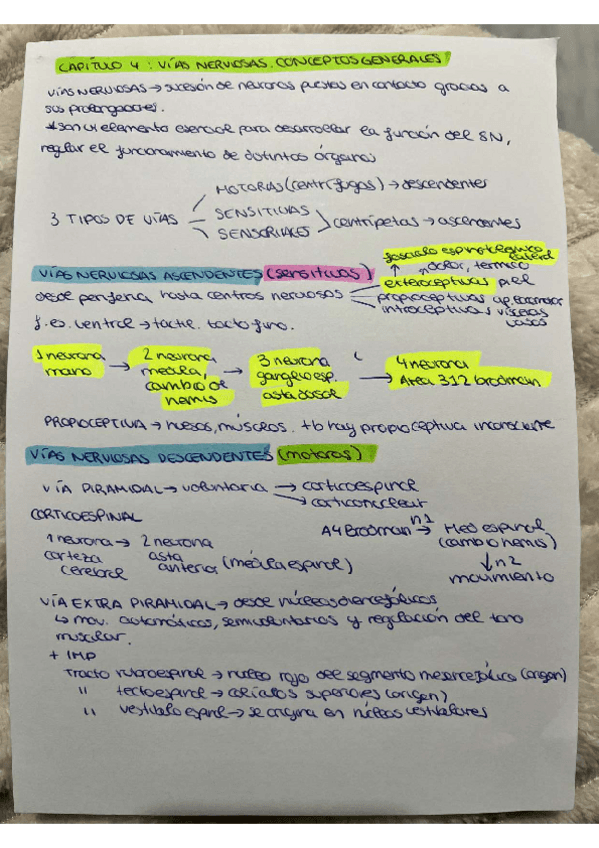 CAPÍTULO 4: VÍAS NERVIOSAS. CONCEPTOS GENERALES
VÍAS NERVIOSAS → sucesión de neuronas puestas en contacto gracias a
sus prolongaciones.
*son un elemento esencial para desarrollar la función del SN,
regular el funcionamiento de distintos órganos
3 TIPOS DE VÍAS
MOTORAS (centrífugas) → descendentes
SENSITIVAS
SENSORIALES
centrípetas → ascendentes
fascículo espinotalámico lateral
VÍAS NERVIOSAS ASCENDENTES (sensitivas)
↑ dolor, térmico
desde periferia hasta centros nerviosos
exteroceptivas piel
propioceptivas ap. locomotor
introceptivas vísceras
vasos
f. es. central → táctil. tacto fino.
1 neurona
mano
→ 2 neurona,
médula,
cambio de
hemis
→ 3 neurona
ganglio esp.
asta dorsal
→ 4 neurona
Área 312 brodman
PROPIOCEPTIVA → huesos, músculos. tb hay propioceptiva inconsciente
VÍAS NERVIOSAS DESCENDENTES (motoras)
VÍA PIRAMIDAL → voluntaria → corticoespinal
→ corticonuclear
CORTICOESPINAL
1 neurona → 2 neurona
corteza asta
cerebral anterior (médula espinal)
A4 Brodman n1 → Med espinal
(cambio hemis)
↓ n2
movimiento
VÍA EXTRA PIRAMIDAL → desde núcleos diencefálicos
↳ mov. automáticos, semivoluntarios y regulación del tono
muscular.
+ IMP
Tracto rubroespinal → núcleo rojo del segmento mesencefálico (origen)
" tectoespinal → colículos superiores (origen)
" vestíbulo espinal → se origina en núcleos vestibulares